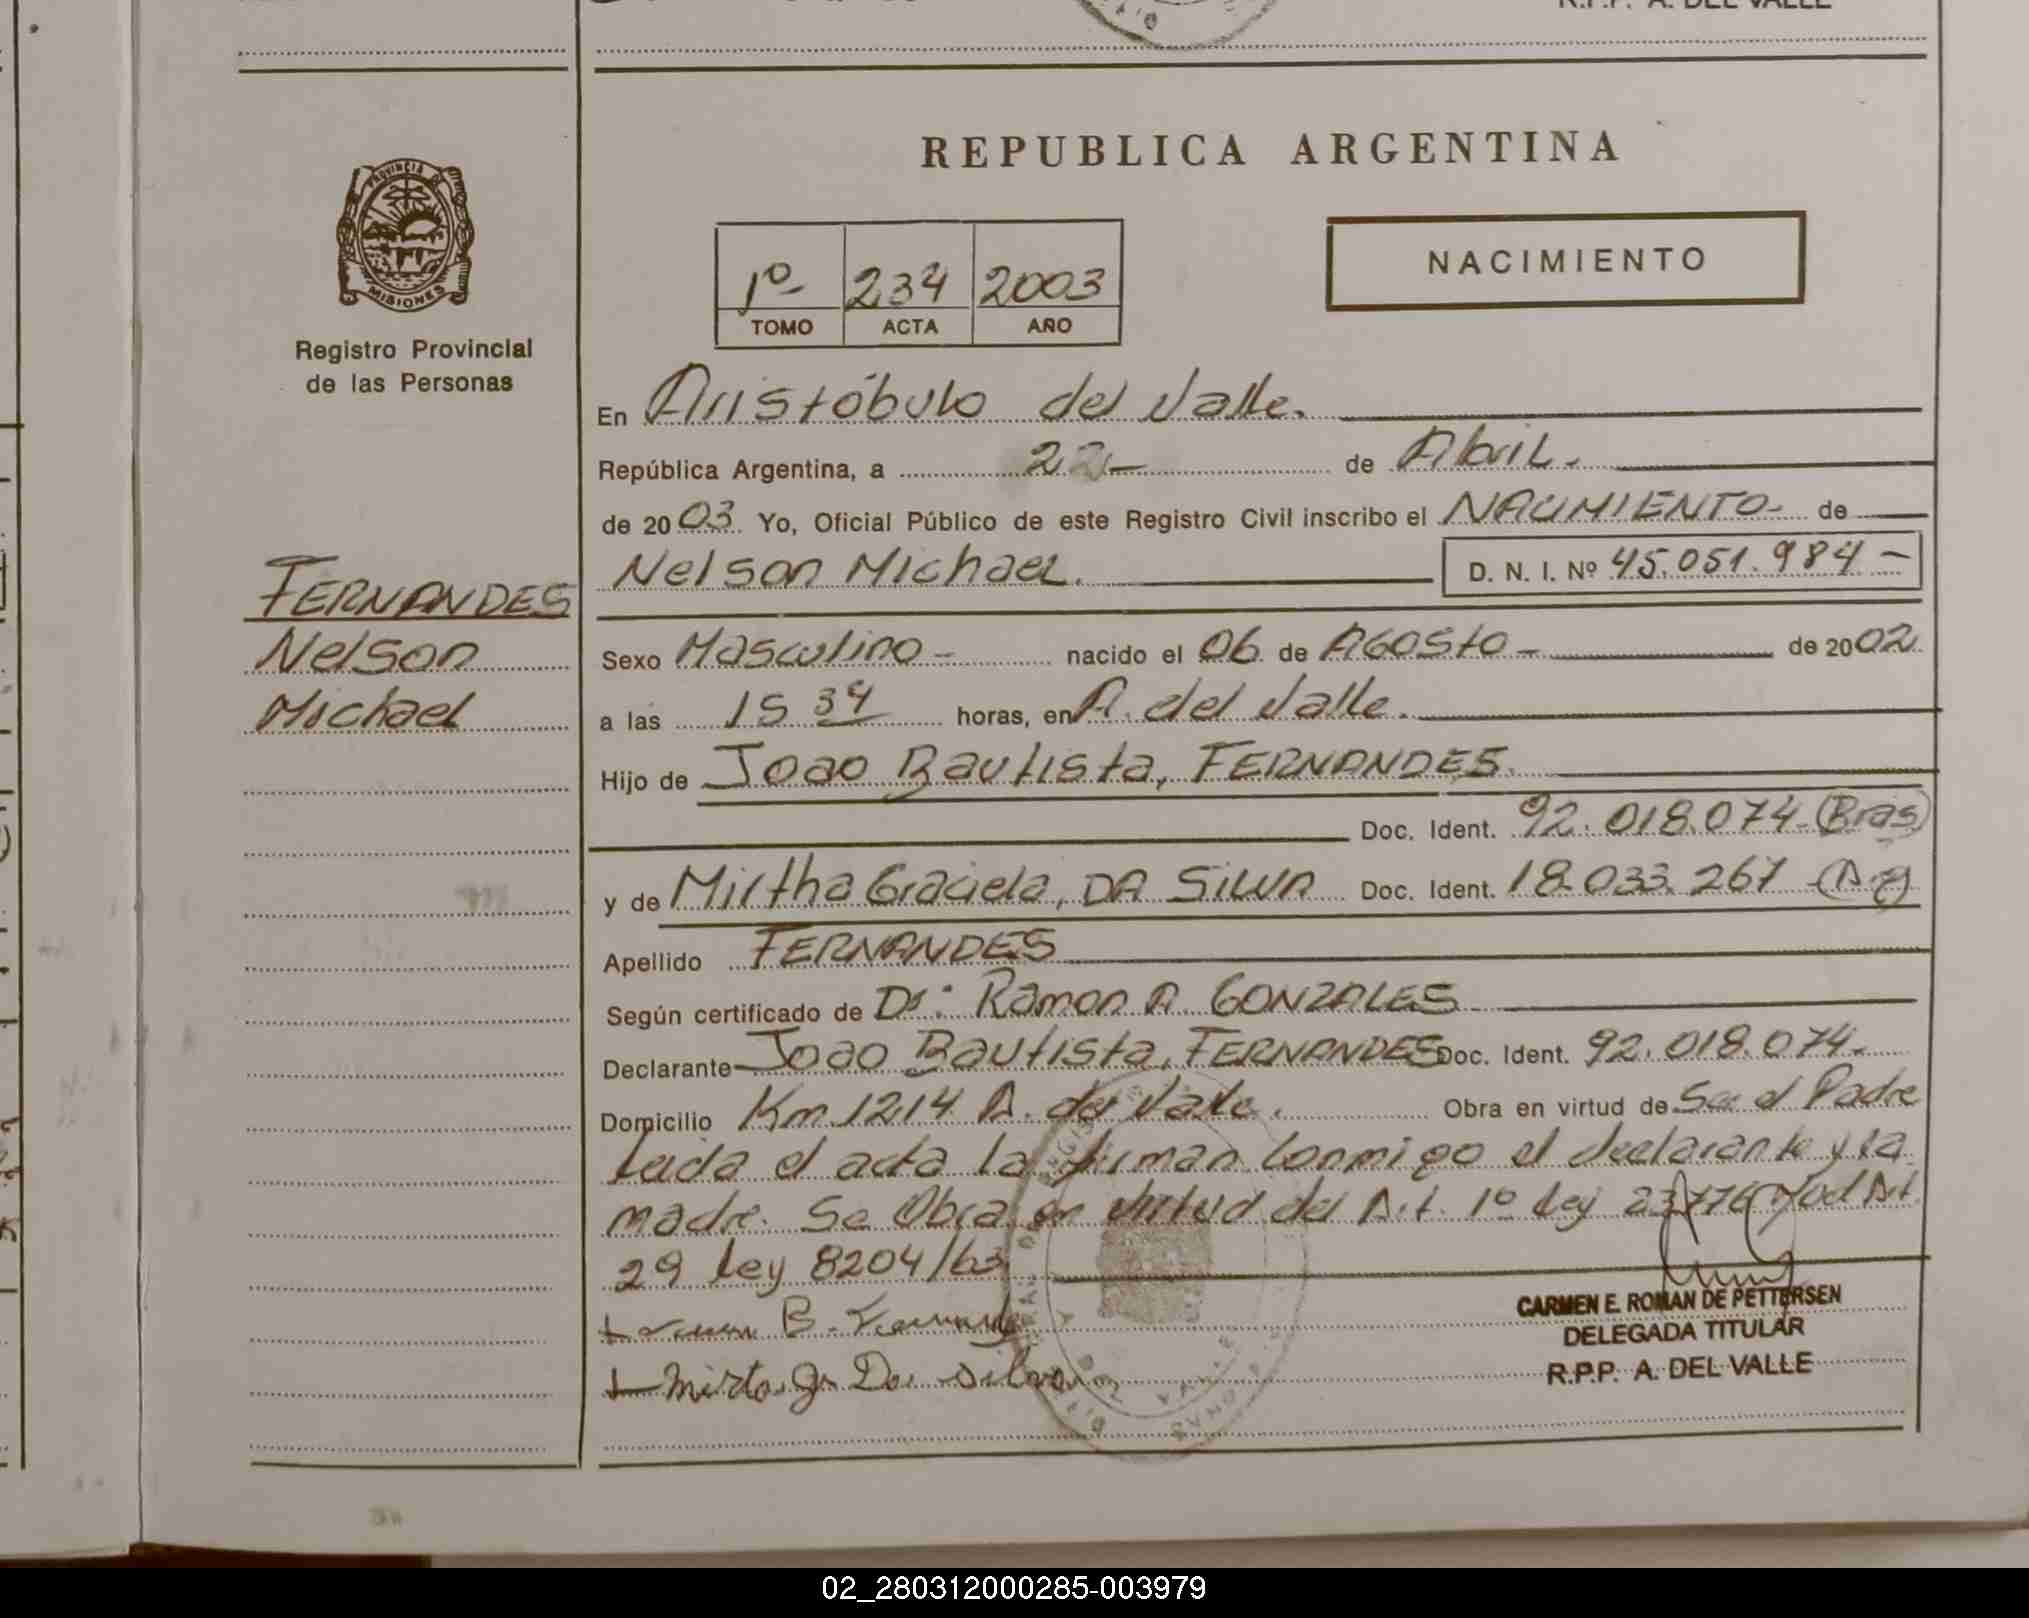 R.P.P. A. DEL VALLE
PROVINCIA DE
MISIONES
Registro Provincial
de las Personas
FERNANDES
Nelson
Michael
REPUBLICA ARGENTINA
1º 234 2003
TOMO ACTA AÑO
NACIMIENTO
En Aristóbulo del Valle.
República Argentina, a 22 de Abril.
de 2003. Yo, Oficial Público de este Registro Civil inscribo el NACIMIENTO de
Nelson Michael. D. N. I. Nº 45.051.984
Sexo Masculino nacido el 06 de AGOSTO de 2002
a las 15 34 horas, en A. del Valle.
Hijo de Joao Bautista, FERNANDES.
Doc. Ident. 92.018.074 (Bras)
y de Mirtha Graciela, DA SILVA Doc. Ident. 18.033.267 (Arg)
Apellido FERNANDES
Según certificado de Dr: Ramon A. GONZALES
Declarante Joao Bautista, FERNANDES Doc. Ident. 92.018.074.
Domicilio Km 1214 A. del Valle. Obra en virtud de Ser el Padre
Leida el acta la firman conmigo el declarante y la
madre. Se Obra en virtud del Art. 1º Ley 23.776 Mod Art.
29 Ley 8204/63
B. Fernandes
Mirta g Da silva
CARMEN E. ROMAN DE PETTERSEN
DELEGADA TITULAR
R.P.P. A. DEL VALLE
02_280312000285-003979